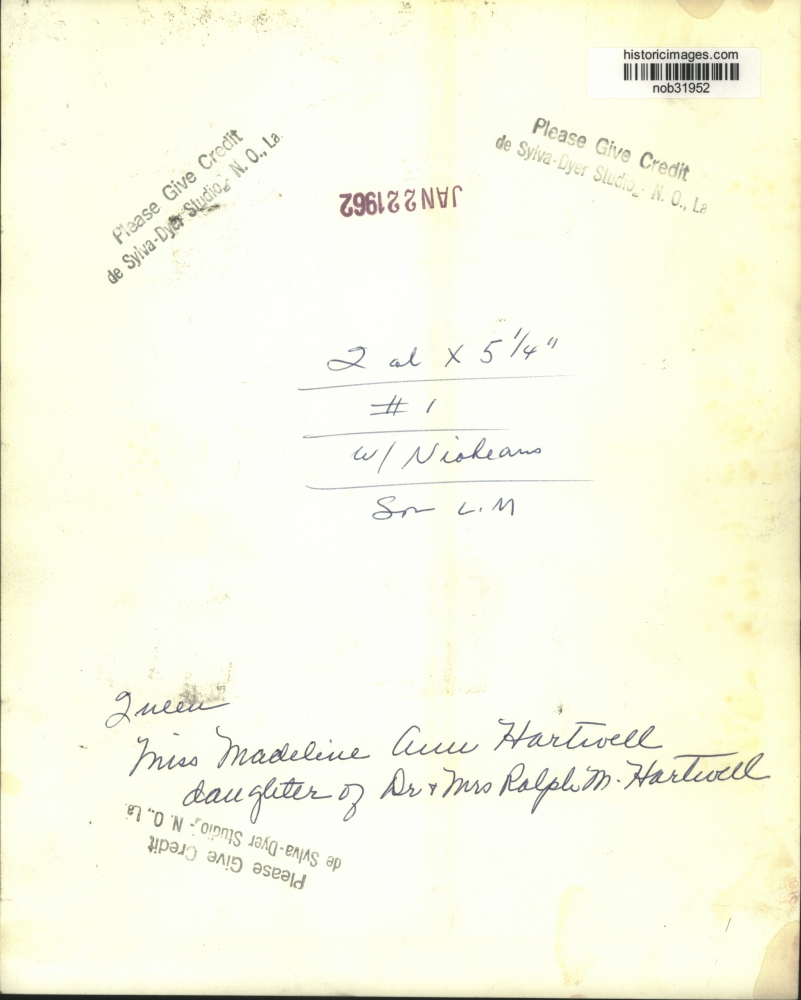 historicimages.com
nob31952
Please Give Credit
de Sylva-Dyer Studio,- N. O., La.
Please Give Credit
de Sylva-Dyer Studio,- N. O., La
JAN 22 1962
2 col x 5 1/4"
# 1
w/ Niobeans
L. M
Queen
Miss Madeline Ann Hartwell
daughter of Dr + Mrs Ralph M. Hartwell
Please Give Credit
de Sylva-Dyer Studio,- N. O., La.